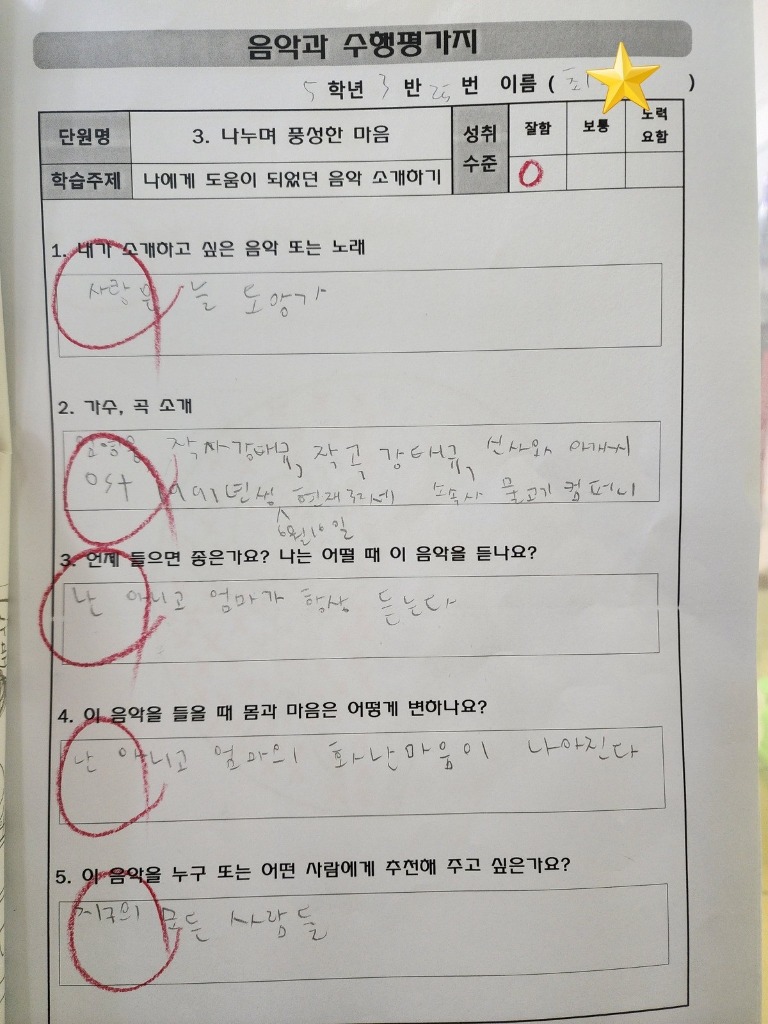 음악과 수행평가지
5 학년 3 반 25 번 이름 ( )
단원명 3. 나누며 풍성한 마음 성취수준 잘함 보통 노력요함
학습주제 나에게 도움이 되었던 음악 소개하기 O
1. 내가 소개하고 싶은 음악 또는 노래
사랑은 늘 도망가
2. 가수, 곡 소개
임영웅 작사강태규, 작곡 강태규, 신사와 아가씨
OST 1991년생 현재 소속사 물고기 컴퍼니
6월16일
3. 언제 들으면 좋은가요? 나는 어떨 때 이 음악을 듣나요?
난 아니고 엄마가 항상 듣는다
4. 이 음악을 들을 때 몸과 마음은 어떻게 변하나요?
난 아니고 엄마의 화난마음이 나아진다
5. 이 음악을 누구 또는 어떤 사람에게 추천해 주고 싶은가요?
지구의 모든 사람들